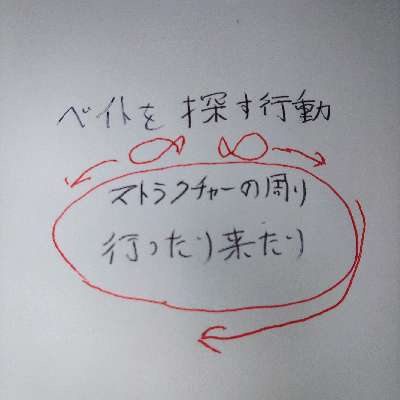 ベイトを探す行動
ストラクチャーの周り
行ったり来たり